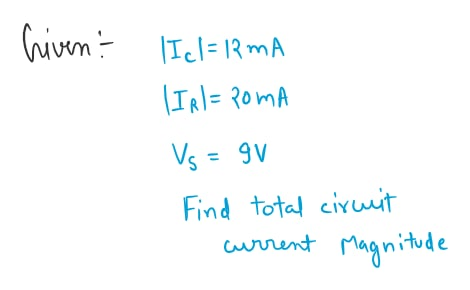 Given :- |Ic| = 12 mA
|IR| = 20 mA
Vs = 9V
Find total circuit
current Magnitude